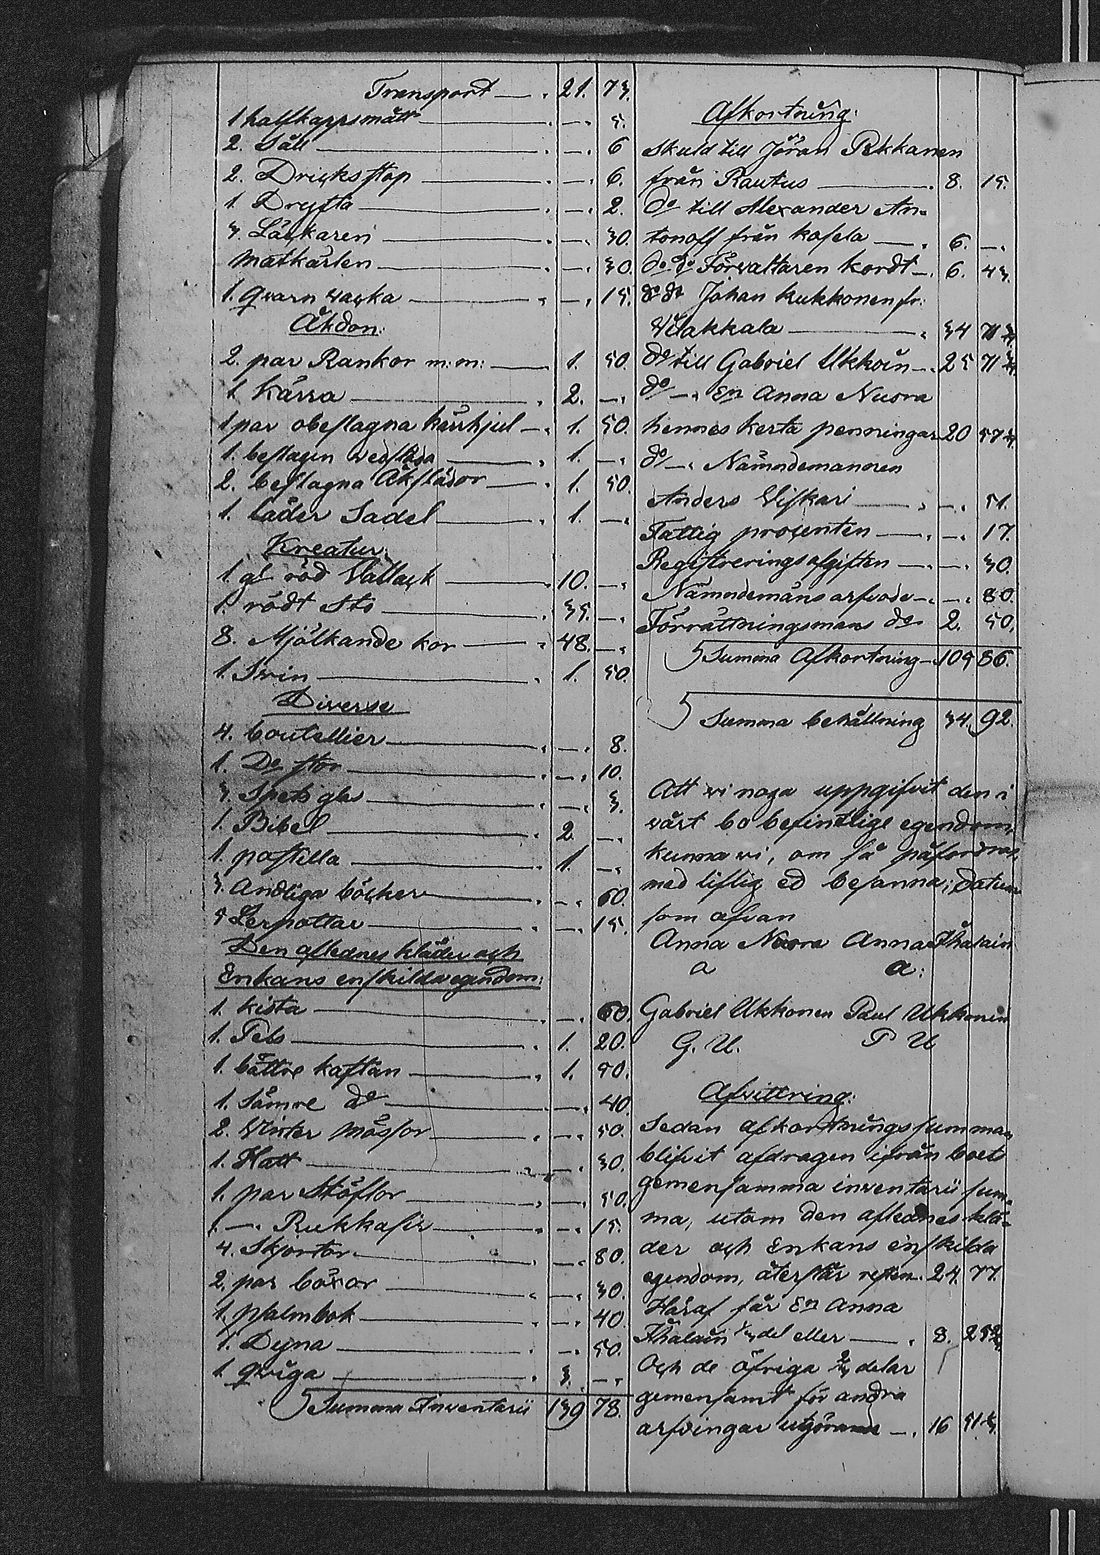 Transport — 21. 73.
1 halfkappsmått — — 5.
2. Såll — — 6
2. Dricksstop — — 6.
1. Dryfta — — 2.
3. Läskaren — — 30.
Matkärlen — — 30.
1. qvarn — — 15.
Åkdon:
2. par Rankor m:m: — 1. 50.
1 Kärra — 2. —
1 par obeslagna kärrhjul — 1. 50.
1. beslagen — 1. —
2. beslagna Åkslädor — 1. 50.
1. läder Sadel — 1. —
Kreatur:
1. gl röd Vallack — 10. —
1. rödt Sto — 35. —
8. Mjölkande kor — 48. —
1. Svin — 1. 50.
Diverse
4. bouteillier — — 8.
1. Do stor — — 10.
3. Spets glas — — 3.
1. Bibel — 2 —
1. postilla — 1. —
3. Andliga böcker — — 60.
5 Lerpottar — — 15.
Den aflednes kläder och
Enkans enskilda egendom:
1. kista — — 60.
1. Pels — 1. 20.
1. bättre kaftan — 1. 50.
1. Sämre do — — 40.
2. Vinter Mössor — — 50.
1. Hatt — — 30.
1. par Stöflor — — 50.
1. — Rukkasir — — 15.
4. Skjortor — — 80.
2. par böxor — — 30.
1. psalmbok — — 40.
1. Dyna — — 50.
1. qviga — 3. —
Summa Inventarii 139 78.
Afkortning:
Skuld till Jöran Pekkanen
från Rautus — 8. 15.
do till Alexander An-
tonoff från kasela — 6. —
do do Förvaltaren Kordt — 6. 43.
do do Johan Kukkonen fr:
Vilakkala — 34 71
do till Gabriel Ukkoin — 25 71
do — En Anna Nuora
hennes kerta penningar 20 57
do — Nämndemannen
Anders Viskari — — 51.
Fattig prosenten — — 17.
Registreringsafgiften — — 30.
Nämndemäns arfvode — — 80.
Förrättningsmans do 2. 50.
Summa Afkortning 109 86.
Summa behållning 34. 92.
Att vi noga uppgifvit den i
vårt bo befintlige egendom,
kunna vi, om så påfordras,
med liflig ed besanna; Datum
som ofvan
Anna Nuora Anna Thalain
a a:
Gabriel Ukkonen Paul Ukkonen
G. U. P U
Afvittring:
Sedan afkortnings summan
blifvit afdragen ifrån boet
gemensamma inventarii sum-
ma, utom den aflednes klä-
der och Enkans enskilda
egendom, återstår resten. 24. 77.
Häraf får En Anna
Thalain 1/3 del eller — 8. 25
Och de öfriga 2/3 delar
gemensamt för andra
arfvingar utgörande — 16 51